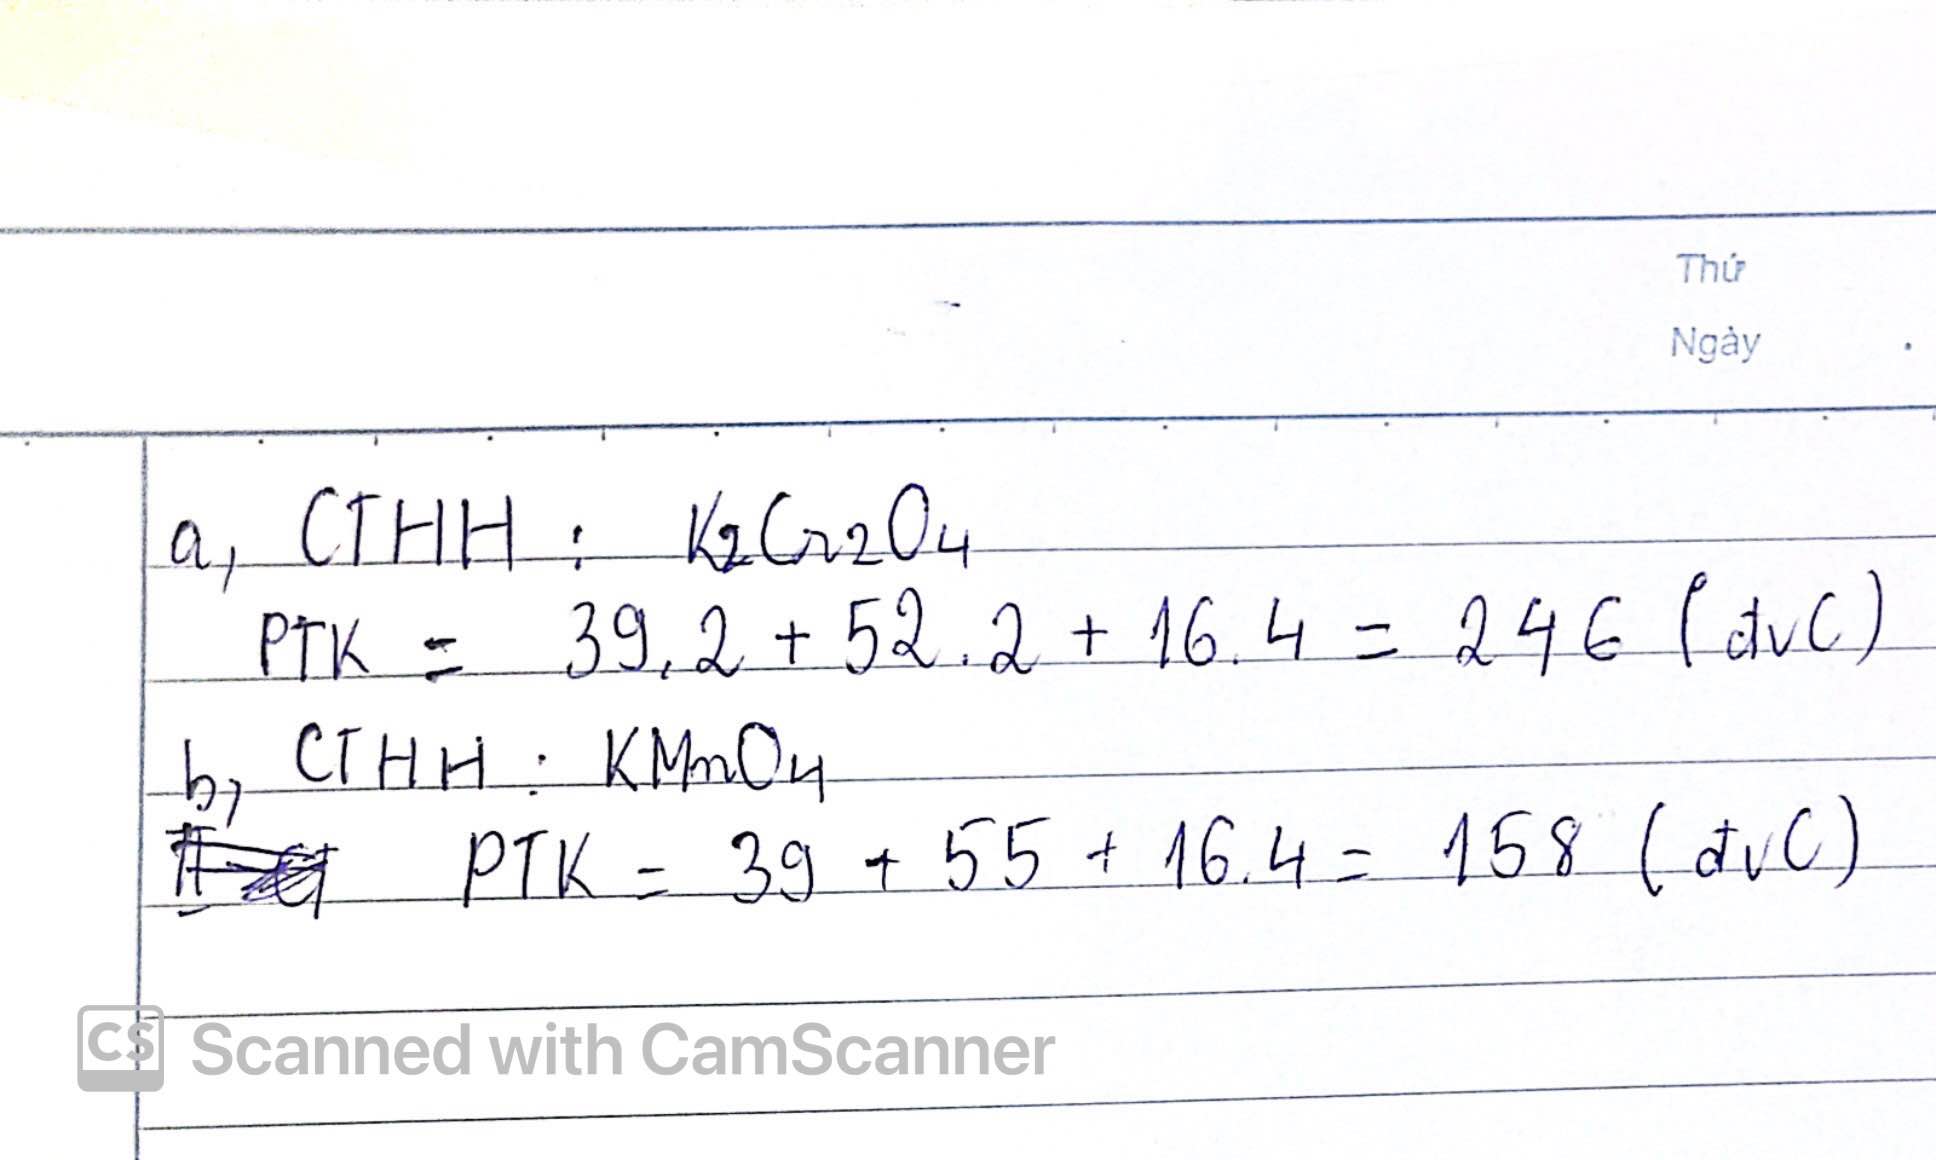 Thứ
Ngày
a, CTHH : K2Cr2O4
PTK = 39.2 + 52.2 + 16.4 = 246 (đvC)
b, CTHH : KMnO4
PTK = 39 + 55 + 16.4 = 158 (đvC)
CS Scanned with CamScanner